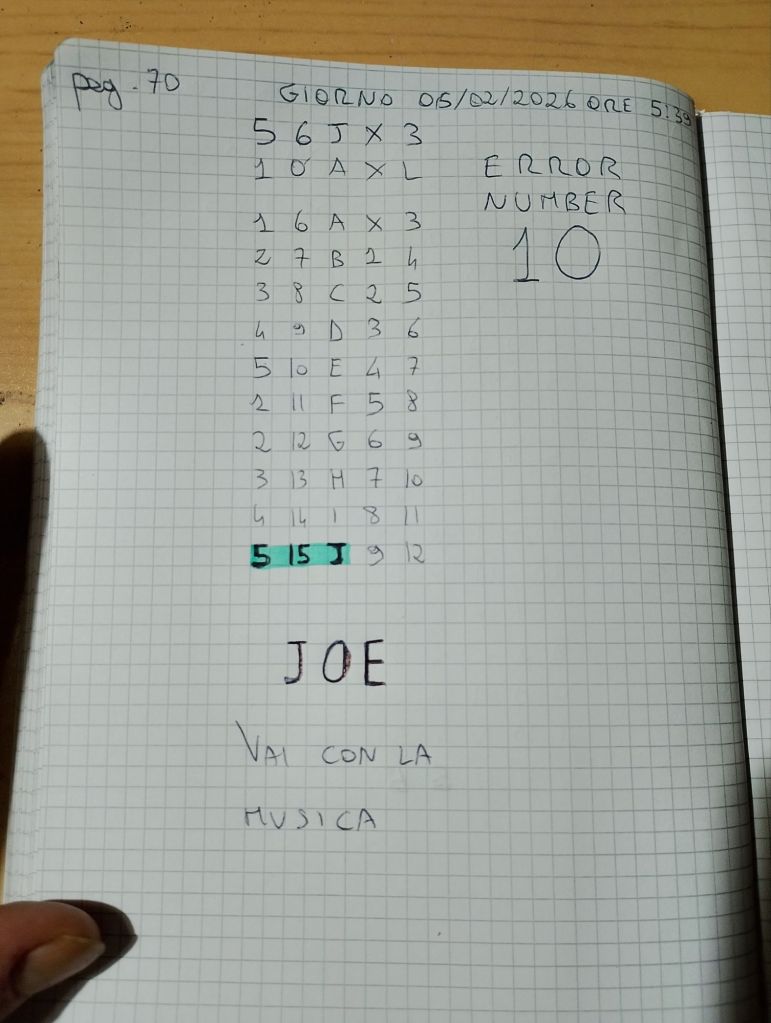 pag. 70
GIORNO 05/02/2026 ORE 5:39
5 6 J X 3
1 0 A X L
ERROR
NUMBER
10
1 6 A X 3
2 7 B 1 4
3 8 C 2 5
4 9 D 3 6
5 10 E 4 7
1 11 F 5 8
2 12 G 6 9
3 13 H 7 10
4 14 I 8 11
5 15 J 9 12
JOE
VAI CON LA
MUSICA